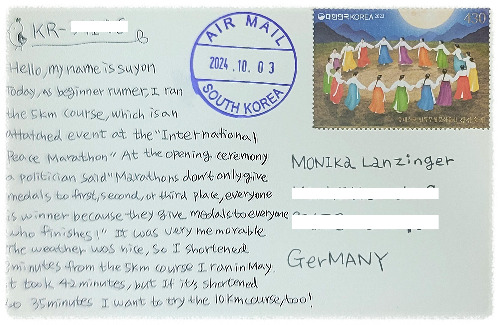 KR-
Hello, my name is suyon
Today, as beginner runner, I ran
the 5km course, which is an
attatched event at the "International
Peace Marathon" At the opening ceremony
a politician said "Marathons don't only give
medals to first, second, or third place, everyone
is winner because they give medals to everyone
who finishes!" It was very memorable
The weather was nice, so I shortened
3minutes from the 5km course I ran in May
it took 42minutes, but if it's shortened
to 35minutes I want to try the 10km course, too!
AIR MAIL
2024.10.03
SOUTH KOREA
대한민국 KOREA 2023
430
강강술래
MONIKA Lanzinger
GerMANY